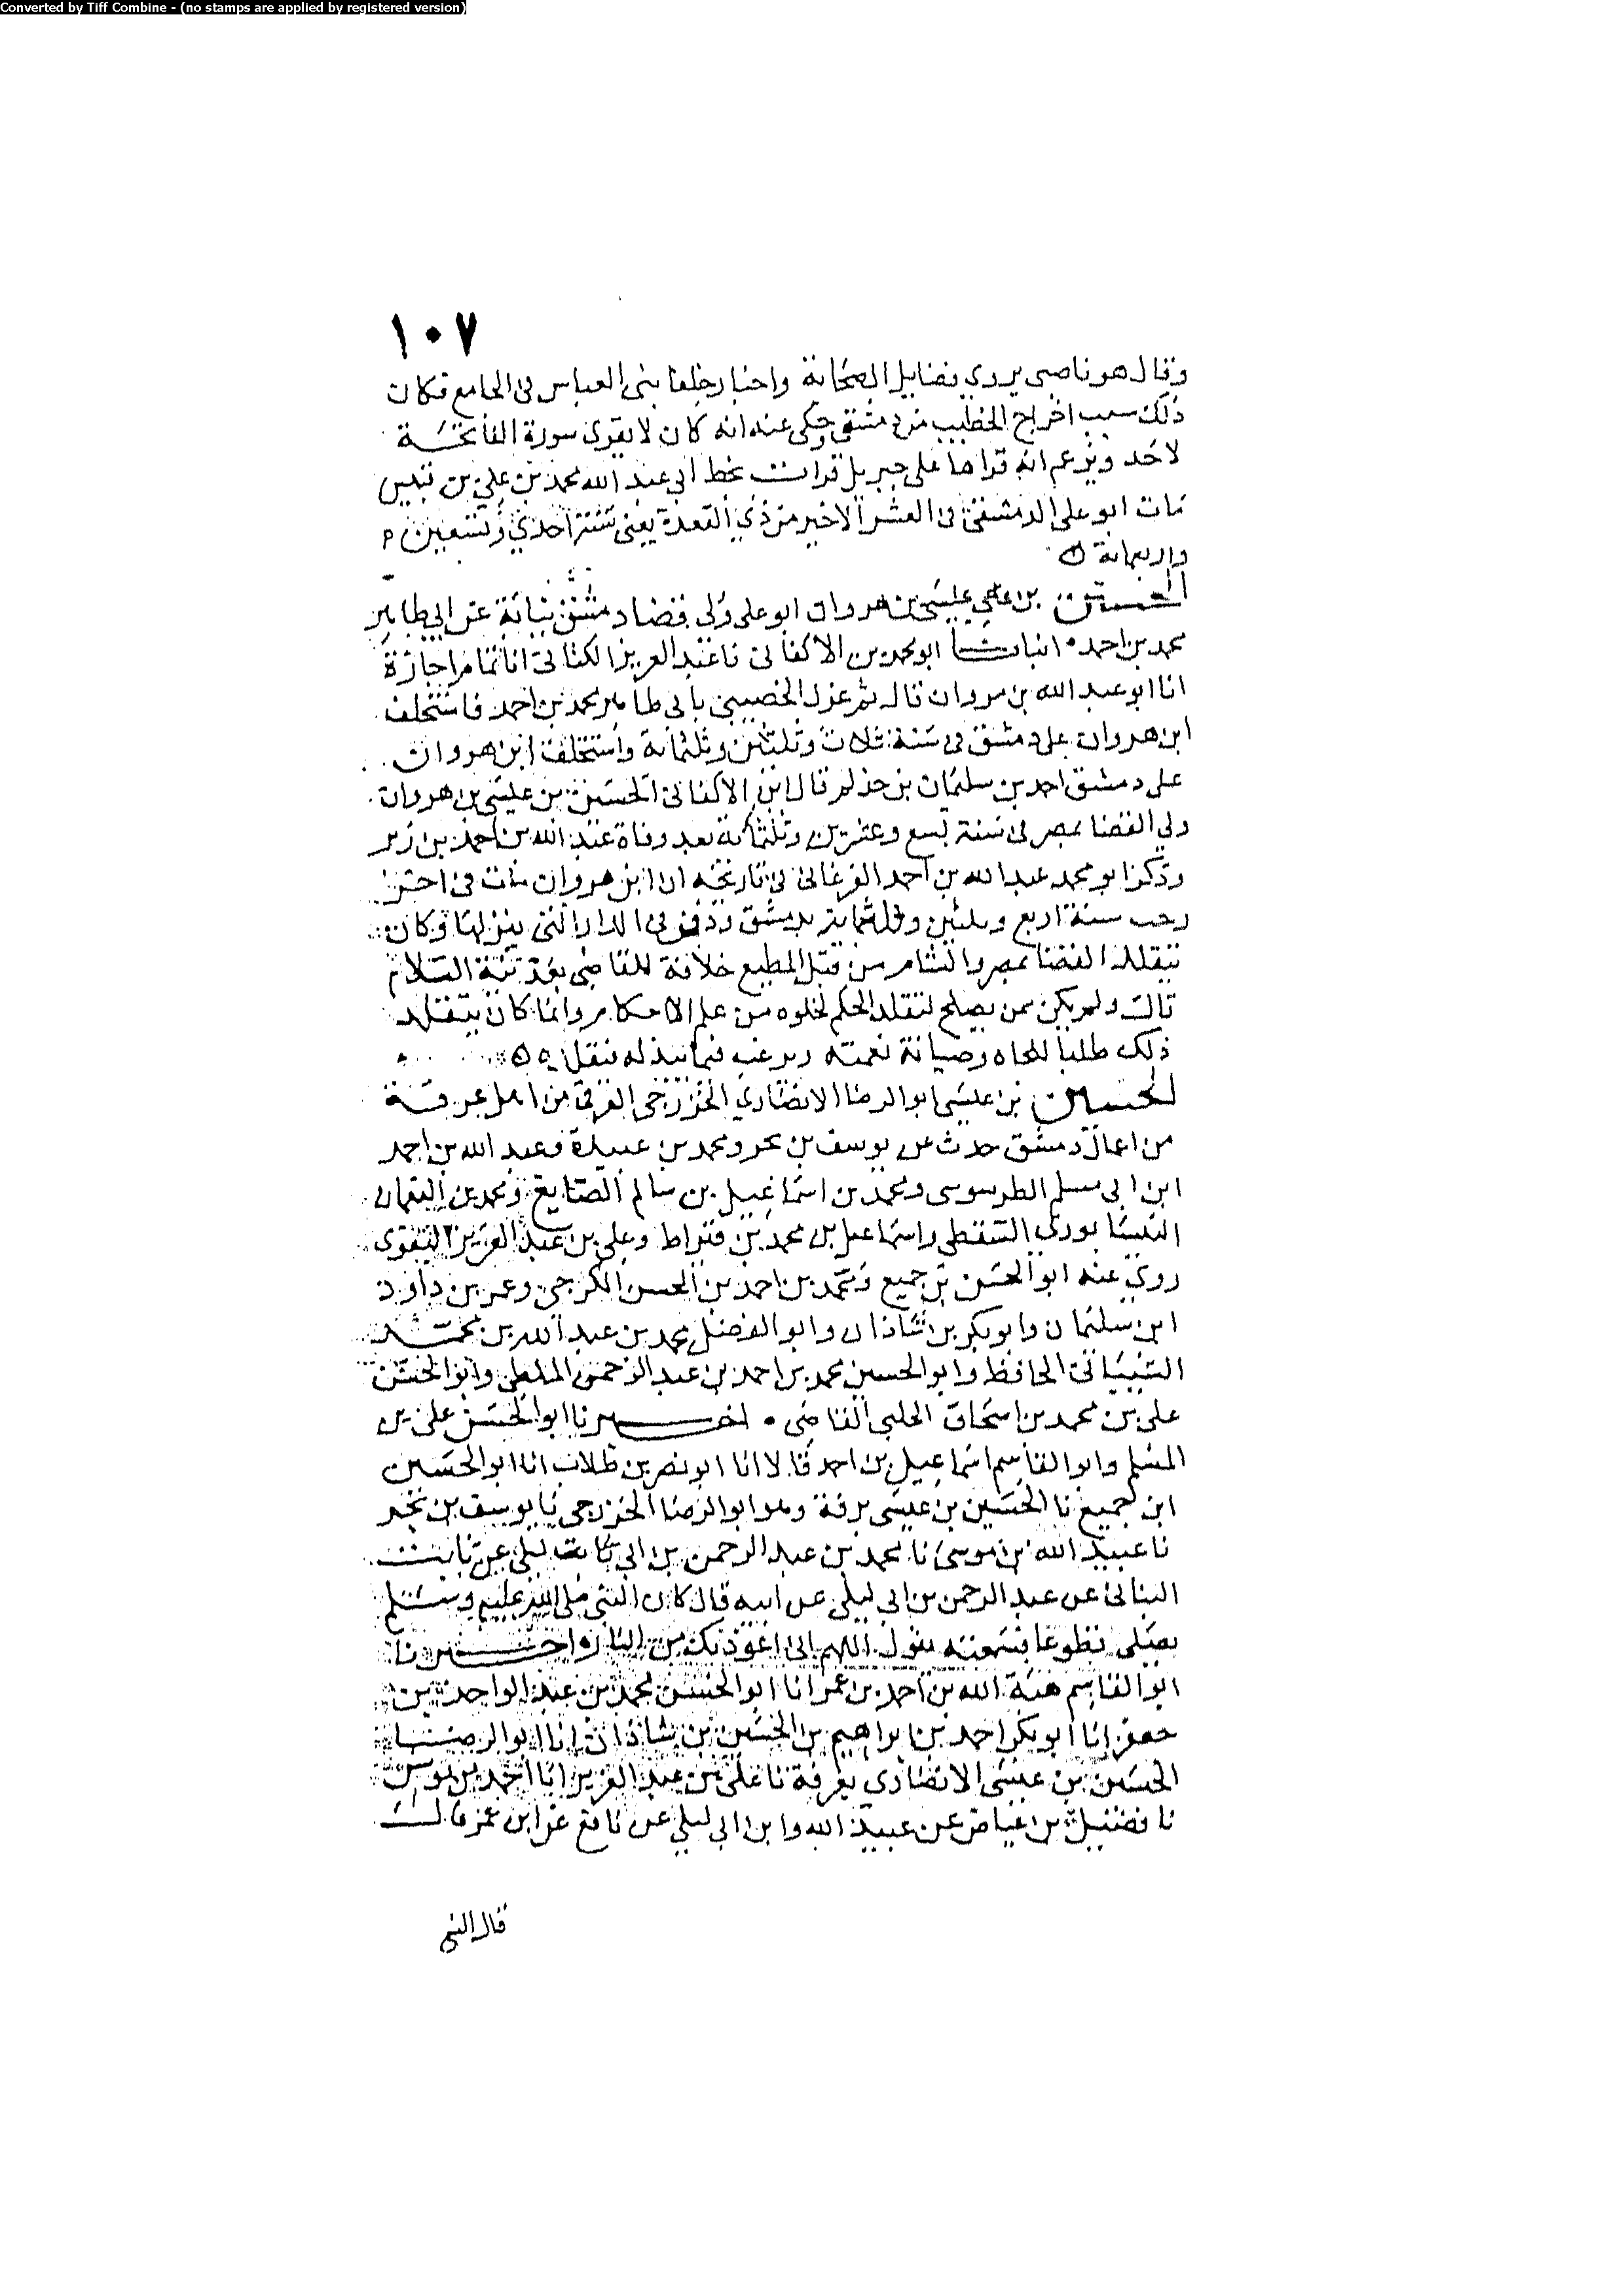 Converted by Tiff Combine - (no stamps are applied by registered version)
١٠٧
وقال هو ناصبى يروي فضايل الصحابة واخبار خلفا بنى العباس فى الجامع فكان
ذلك سبب اخراج الخطيب من دمشق وحكى عنه انه كان لا يقرى سورة الفاتحة
لاحد ويزعم انه قراها على جبريل قرات بخط ابى عبد الله محمد بن على بن قبيس
مات ابو على الدمشقى فى العشر الاخير من ذي القعدة يعنى سنة احدي وتسعين
واربعماية
الحسين بن على عيسى بن هروان ابو على ولى قضا دمشق نيابة عن ابى طاهر
محمد بن احمد انبانا ابو محمد بن الاكفانى نا عبد العزيز الكتانى انا تمام اجازة
انا ابو عبد الله بن مروان قال ثم عزل الخصيبى بابى طاهر محمد بن احمد فاستخلف
ابن هروان على دمشق فى سنة ثلاث وثلثين وثلثماية واستخلف ابن هروان
على دمشق احمد بن سليمان بن حذلم قال ابن الاكفانى الحسين بن عيسى بن هروان
ولي القضا بمصر فى سنة تسع وعشرين وثلثماية بعد وفاة عبد الله بن احمد بن زبر
وذكر ابو محمد عبد الله بن احمد الفرغانى فى تاريخه ان ابن هروان مات فى اخر
رجب سنة اربع وثلثين وثلثماية بدمشق ودفن فى الدار التى ينزلها وكان
يتقلد القضا بمصر والشام من قبل المطيع خلافة للقاضى بمدينة السلام
قال ولم يكن ممن يصلح لتقلد الحكم لخلوه من علم الاحكام وانما كان يتقلد
ذلك طلبا للجاه وصيانة نعمته ويرغب فيما يبذله فيقلد
الحسين بن عيسى ابو الرضا الانصاري الخزرجى العرقى من اهل عرقة
من اعمال دمشق حدث عن يوسف بن بحر ومحمد بن عبيدة وعبد الله بن احمد
ابن ابى مسلم الطرسوسى ومحمد بن اسماعيل بن سالم الصايغ ومحمد بن النعمان
النيسابوري السقطى واسماعيل بن محمد بن قيراط وعلى بن عبد العزيز البغوى
روي عنه ابو الحسن بن جميع ومحمد بن احمد بن الحسن الكرجى وعمر بن داود
ابن سليمان وابو بكر بن شاذان وابو الفضل محمد بن عبد الله بن محمد
الشيبانى الحافظ وابو الحسين محمد بن احمد بن عبد الرحمن الملطى وابو الحسن
على بن محمد بن اسحاق الحلبى القاضى اخبرنا ابو الحسن على بن
المسلم وابو القاسم اسماعيل بن احمد قالا انا ابو نصر بن طلاب انا ابو الحسين
ابن جميع نا الحسين بن عيسى برقة وهو ابو الرضا الخزرجى نا يوسف بن بحر
نا عبيد الله بن موسى نا محمد بن عبد الرحمن بن ابى ليلى عن ثابت
البنانى عن عبد الرحمن بن ابى ليلى عن ابيه قال كان النبى صلى الله عليه وسلم
يصلى تطوعا فسمعته يقول اللهم انى اعوذ بك من النار واخبرنا
ابو القاسم هبة الله بن احمد بن عمر انا ابو الحسن محمد بن عبد الواحد بن
جعفر انا ابو بكر احمد بن ابراهيم بن الحسن بن شاذان انا ابو الرضا
الحسين بن عيسى الانصارى بعرقة نا على بن عبد العزيز انا احمد بن يونس
نا فضيل بن عياض عن عبيد الله وابن ابى ليلى عن نافع عن ابن عمر قال
قال النبى